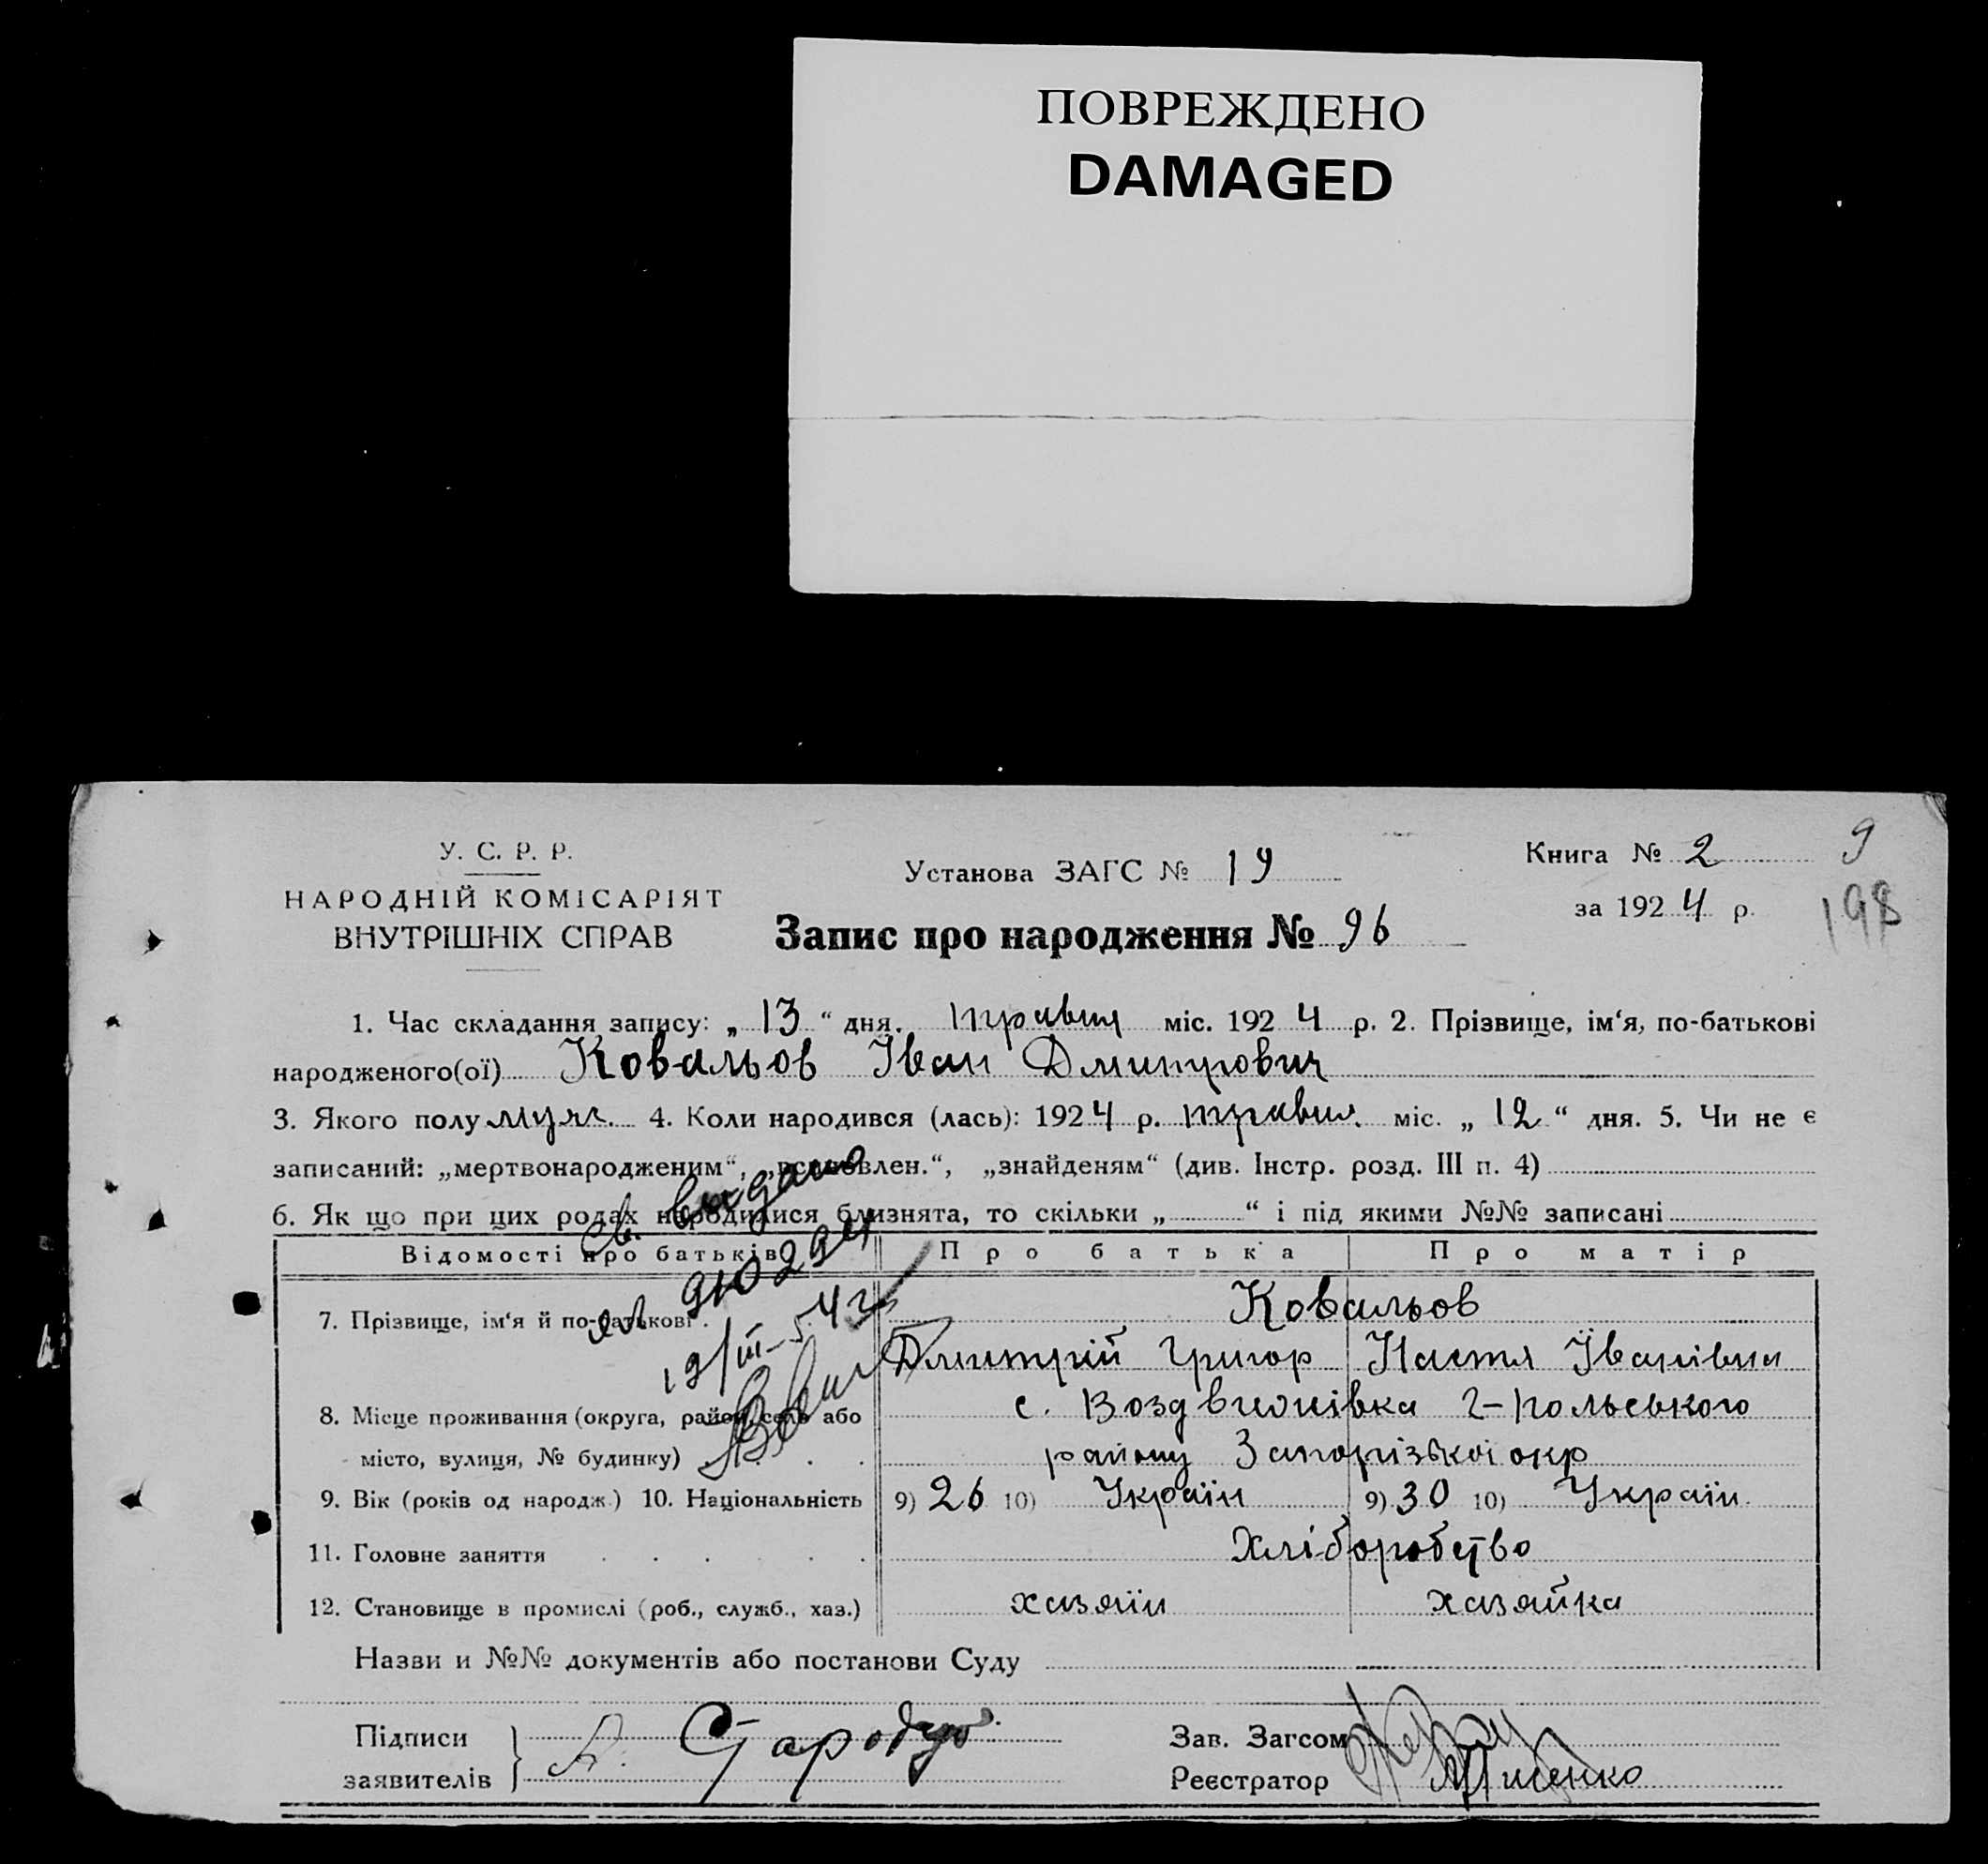 ПОВРЕЖДЕНО
DAMAGED
У. С. Р. Р.
НАРОДНІЙ КОМІСАРІЯТ
ВНУТРІШНІХ СПРАВ
Установа ЗАГС № 19
Запис про народження № 96
Книга № 2
за 1924 р.
9
198
1. Час складання запису: „13“ дня. травня міс. 1924 р. 2. Прізвище, ім‘я, по-батькові
народженого(ої) Ковальов Іван Дмитрович
3. Якого полу муж. 4. Коли народився (лась): 1924 р. травня міс. „12“ дня. 5. Чи не є
записаний: „мертвонародженим“, „встановлен.“, „знайденям“ (див. Інстр. розд. III п. 4)
6. Як що при цих родах народилися близнята, то скільки „ “ і під якими №№ записані
Св. видано
Відомості про батьків Про батька Про матір
7. Прізвище, ім‘я й по-батькові. Ковальов
Дмитрій Григор Настя Іванівна
8. Місце проживання (округа, район, село або с. Воздвижівка Г-Польського
місто, вулиця, № будинку) району Запорізької окр
9. Вік (років од народж.) 10. Національність 9) 26 10) Україн 9) 30 10) Україн.
11. Головне заняття Хліборобство
12. Становище в промислі (роб., служб., хаз.) хазяїн хазяйка
Назви и №№ документів або постанови Суду
Підписи
заявителів
А. Стародуб
Зав. Загсом
Реєстратор